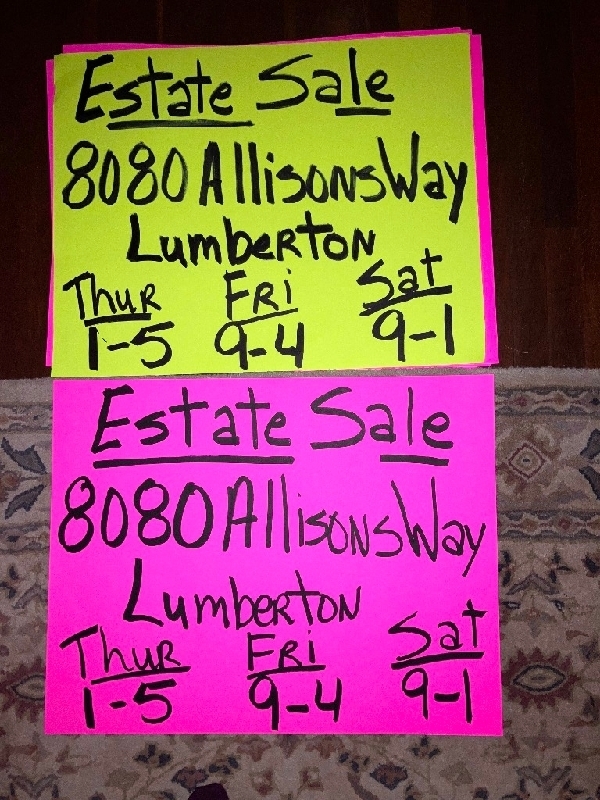 Estate Sale
8080 Allisons Way
Lumberton
Thur Fri Sat
1-5 9-4 9-1
Estate Sale
8080 Allisons Way
Lumberton
Thur Fri Sat
1-5 9-4 9-1